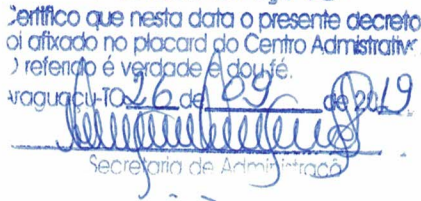 Certifico que nesta data o presente decreto
oi afixado no placard do Centro Admistrativ
) referido é verdade e dou fé.
Araguaçu-TO 26 de 09 de 2019
Secretaria de Administraçã